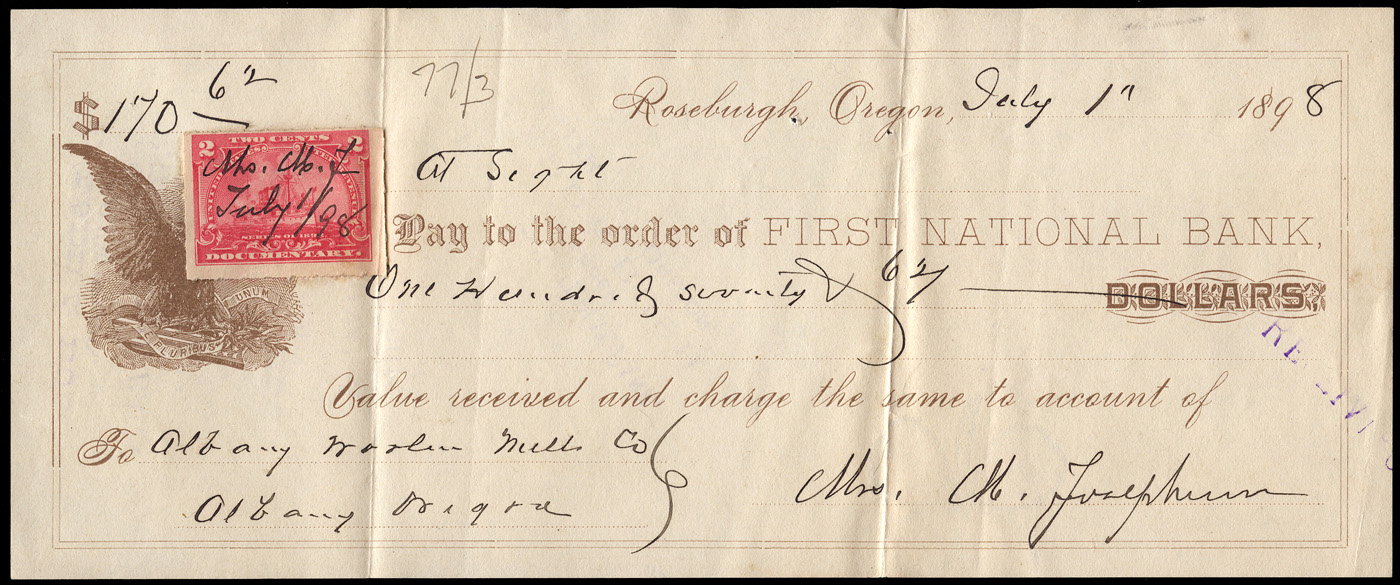 $170 62
77/3
Roseburgh, Oregon, July 1" 1898
2 TWO CENTS 2
Mrs. M. J
July 1/98
SERIES OF 1898
DOCUMENTARY.
At Sight
Pay to the order of FIRST NATIONAL BANK,
One Hundred seventy & 62 DOLLARS,
E PLURIBUS UNUM
Value received and charge the same to account of
To Albany Woolen Mills Co
Albany Oregon
Mrs. M. Josephson